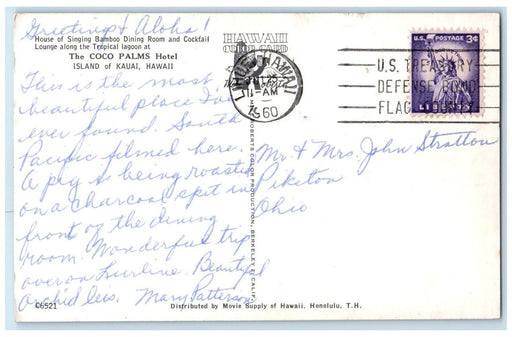 Greetings & Aloha!
House of Singing Bamboo Dining Room and Cocktail
Lounge along the Tropical lagoon at
The COCO PALMS Hotel
ISLAND of KAUAI, HAWAII
This is the most
beautiful place I've
ever found. South
Pacific filmed here.
A pig is being roasted
on a charcoal spit in
front of the dining
room. Wonderful trip
over on Lurline. Beautiful
orchid leis. Mary Patterson
C6521
HAWAII
COLOR CARD
LIHUE, HAWAII
OCT 25
11-AM
1960
U.S. TREASURY
DEFENSE BOND
FLAG
U.S. POSTAGE 3¢
Mr & Mrs. John Stratton
Piketon
Ohio
ROBERTS COLOR PRODUCTION, BERKELEY, CALIF.
Distributed by Movie Supply of Hawaii, Honolulu, T.H.